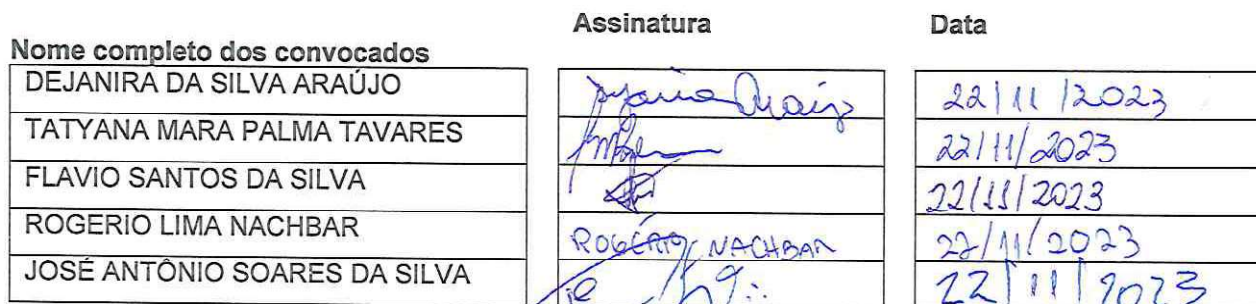 Assinatura Data
Nome completo dos convocados
DEJANIRA DA SILVA ARAÚJO 22/11/2023
TATYANA MARA PALMA TAVARES 22/11/2023
FLAVIO SANTOS DA SILVA 22/11/2023
ROGERIO LIMA NACHBAR ROGÉRIO NACHBAR 22/11/2023
JOSÉ ANTÔNIO SOARES DA SILVA 22/11/2023